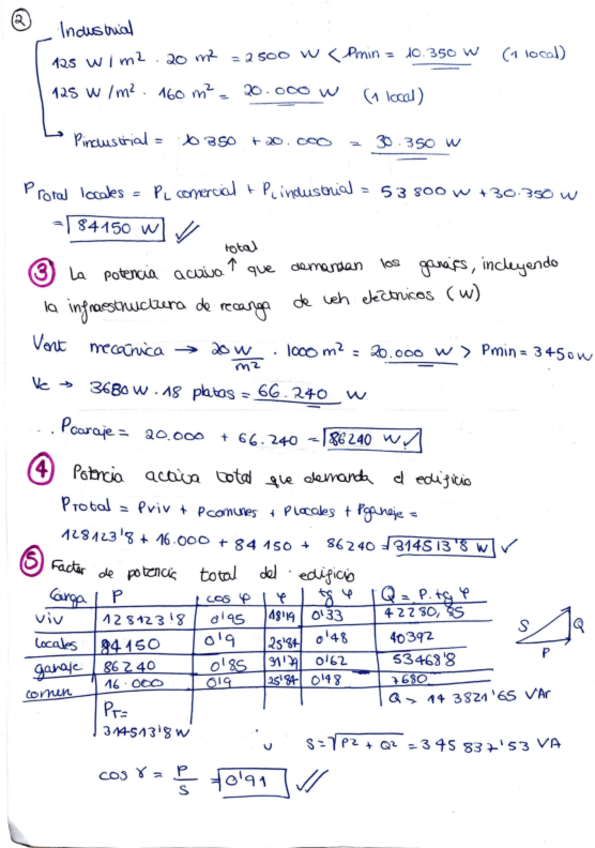 2
Industrial
125 W/m² · 20 m² = 2500 W < Pmin = 10.350 W (1 local)
125 W/m² · 160 m² = 20.000 W (1 local)
Pindustrial = 10350 + 20.000 = 30.350 W
PTotal locales = PL comercial + PL industrial = 53800 W + 30.350 W
= 84150 W
total
3 La potencia activa ↑ que demandan los garajes, incluyendo
la infraestructura de recarga de veh eléctricos (W)
Vent mecánica → 20 W/m² · 1000 m² = 20.000 W > Pmin = 3450 W
Ve → 3680 W · 18 plazas = 66.240 W
Pgaraje = 20.000 + 66.240 = 86240 W
4 Potencia activa total que demanda el edificio
Ptotal = Pviv + Pcomunes + Plocales + Pgaraje =
128123'8 + 16.000 + 84150 + 86240 = 314513'8 W
5 Factor de potencia total del edificio
Carga | P | cos φ | φ | tg φ | Q = P. tg φ
viv | 128123'8 | 0'95 | 18'19 | 0'33 | 42280,85
locales | 84150 | 0'9 | 25'84 | 0'48 | 40392
garaje | 86240 | 0'85 | 31'79 | 0'62 | 53468'8
comun | 16.000 | 0'9 | 25'84 | 0'48 | 7680
S Q P
PT = Q = 143821'65 VAr
314513'8 W
S = √P² + Q² = 345837'53 VA
cos γ = P/S = 0'91